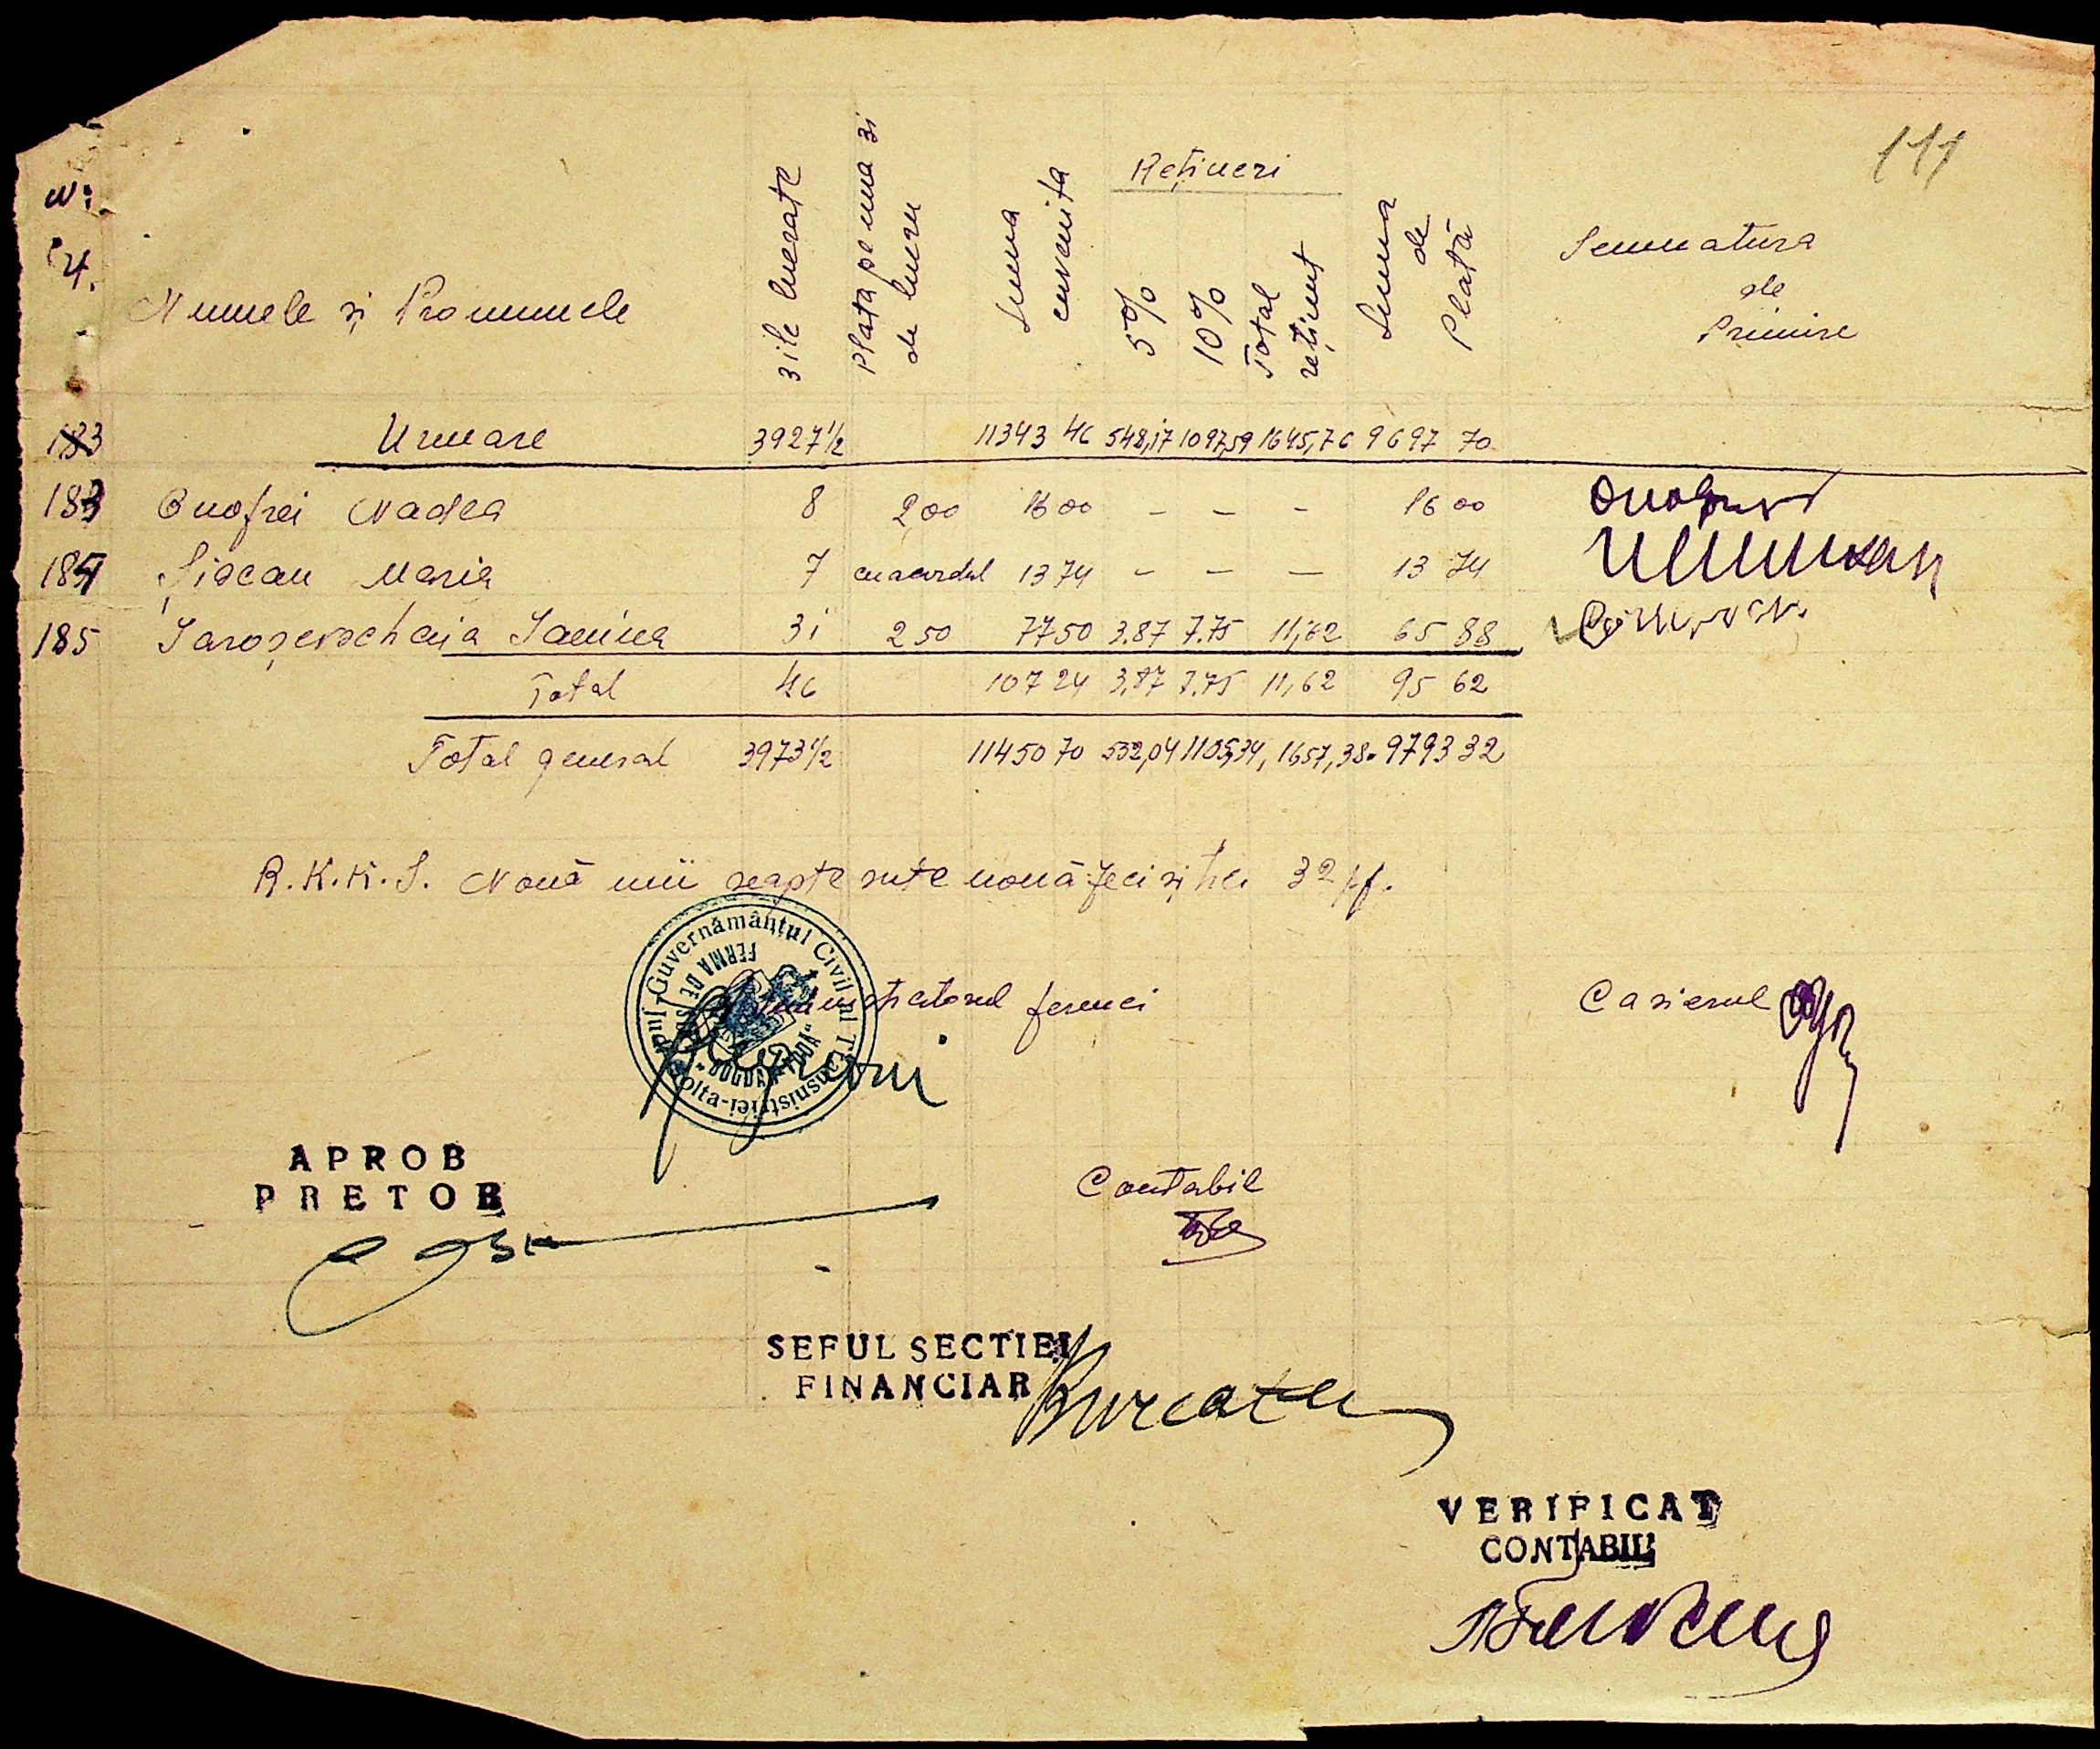 111
Nr.
crt.
Numele și Pronumele
zile lucrate
Plata pe una zi
de lucru
Suma
cuvenita
Rețineri
5%
10%
Total
reținut
Suma
de
Plată
Semnatura
de
Primire
183 Urmare 3927 1/2 11343 46 548,17 1097,59 1645,76 9697 70
183 Onofrei Nadea 8 2 00 16 00 - - - 16 00
184 Maria 7 cu acordul 13 74 - - - 13 74
185 31 2 50 77 50 3.87 7.75 11,62 65 88
Total 46 107 24 3,87 7.75 11,62 95 62
Total general 3973 1/2 11450 70 552,04 1105,34, 1657,38. 9793 32
R.K.K.S. Nouă mii șapte sute nouă zeci și trei 32 pf.
Guvernământul Civil al Transnistriei-
FERMA DE
Administratorul fermei
Casierul
APROB
PRETOR
Contabil
SEFUL SECTIEI
FINANCIAR
VERIFICAT
CONTABIL